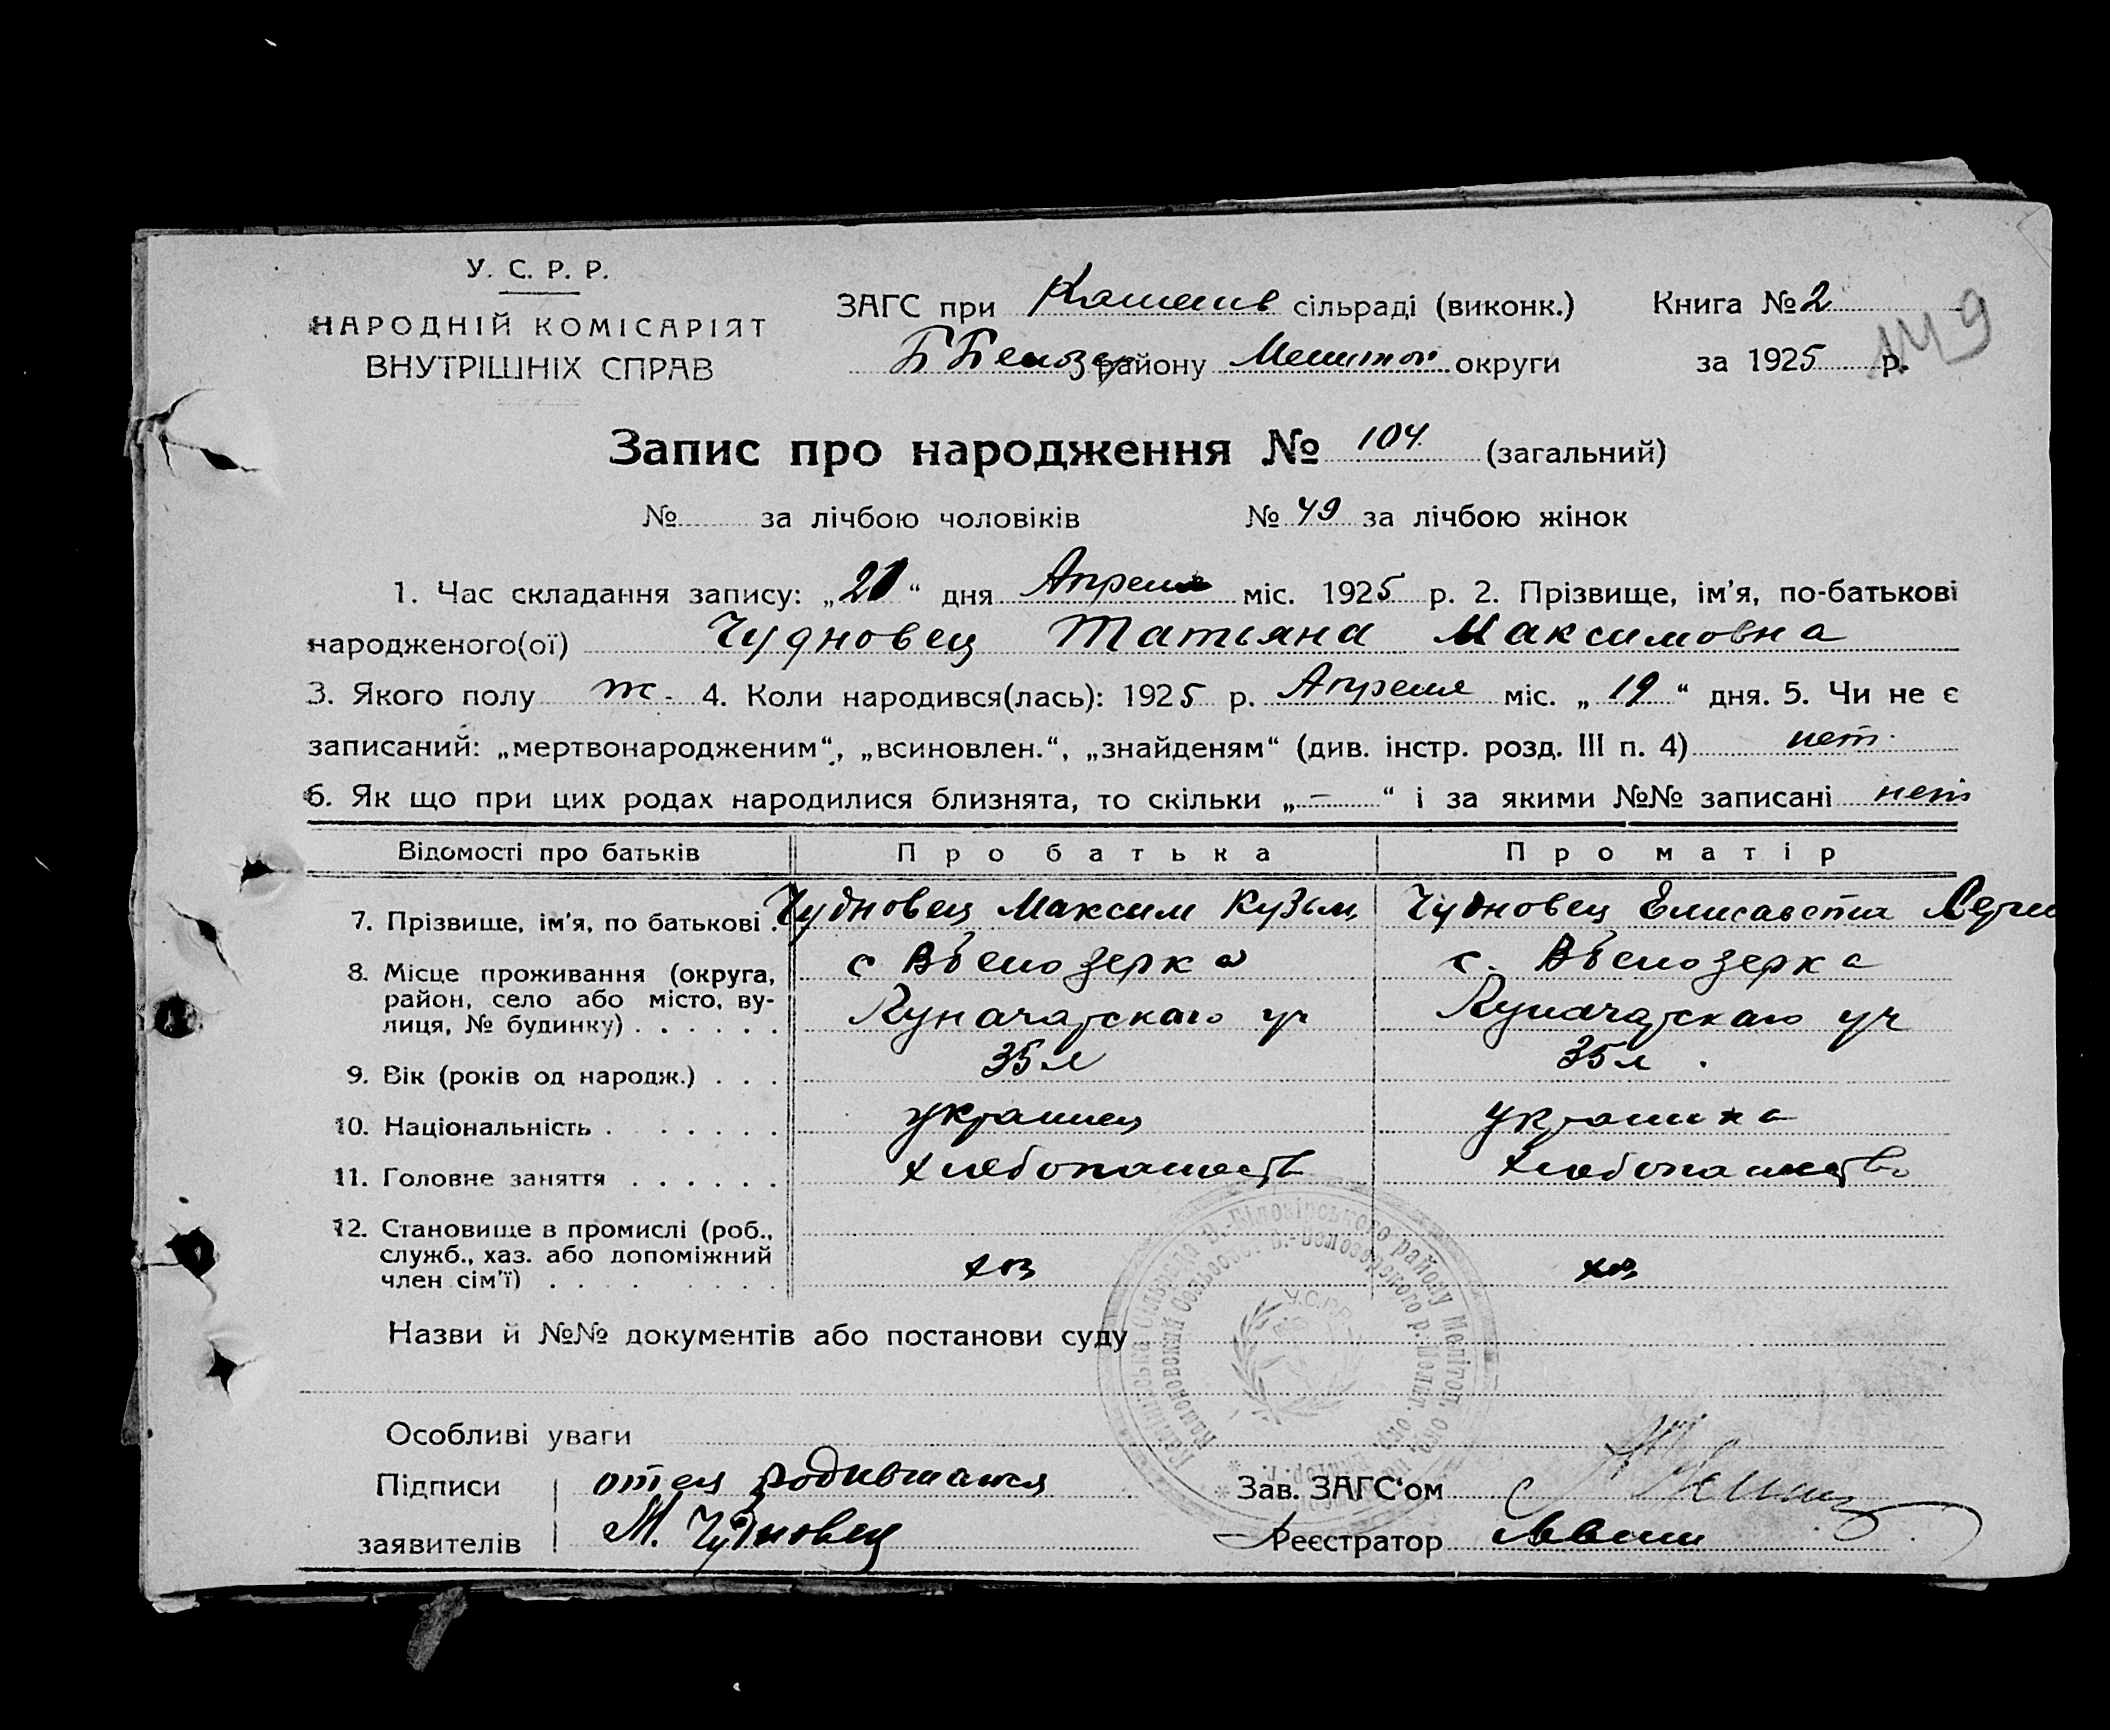 У. С. Р. Р.
НАРОДНІЙ КОМІСАРІЯТ
ВНУТРІШНІХ СПРАВ
ЗАГС при сільраді (виконк.)
району Мелитоп округи
Книга № 2
за 1925 р.
149
Запис про народження № 104 (загальний)
№ за лічбою чоловіків № 49 за лічбою жінок
1. Час складання запису: „21“ дня Апреля міс. 1925 р. 2. Прізвище, ім'я, по-батькові
народженого(ої) Чудновец Татьяна Максимовна
3. Якого полу ж. 4. Коли народився(лась): 1925 р. Апреля міс. „19“ дня. 5. Чи не є
записаний: „мертвонародженим“, „всиновлен.“, „знайденям“ (див. інстр. розд. III п. 4) нет
6. Як що при цих родах народилися близнята, то скільки „—“ і за якими №№ записані нет
Відомості про батьків Про батька Про матір
7. Прізвище, ім'я, по батькові . Чудновец Максим Кузьм Чудновец Елисавета
8. Місце проживання (округа, с Вбелозерка с. Вбелозерка
район, село або місто, ву-
лиця, № будинку) . . . . . . Луначарскаго уч Луначарскаго уч
9. Вік (років од народж.) . . . 35 л 35 л.
10. Національність . . . . . . украинец украинка
11. Головне заняття . . . . . . хлебопашеств хлебопашество
12. Становище в промислі (роб.,
служб., хаз. або допоміжний
член сім'ї) . . . . . . . . хоз хоз
Назви й №№ документів або постанови суду
У.С.Р.Р.
Особливі уваги
Підписи отец родившаяся Зав. ЗАГС'ом
заявителів М. Чудновец Реєстратор